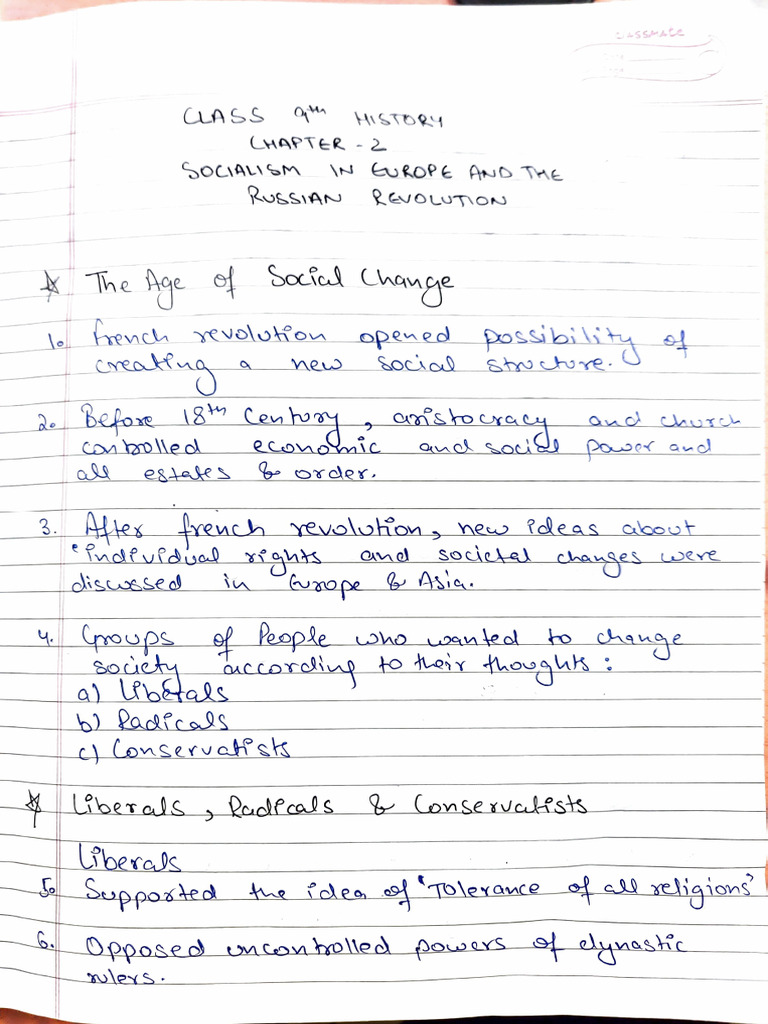 classmate
CLASS 9th HISTORY
CHAPTER - 2
SOCIALISM IN EUROPE AND THE
RUSSIAN REVOLUTION
☆ The Age of Social Change
1. french revolution opened possibility of
creating a new social structure.
2. Before 18th Century, aristocracy and church
controlled economic and social power and
all estates & order.
3. After french revolution, new ideas about
'individual rights and societal changes were
discussed in Europe & Asia.
4. Groups of People who wanted to change
society according to their thoughts :
a) Liberals
b) Radicals
c) Conservatists
☆ Liberals, Radicals & Conservatists
Liberals
5. Supported the idea of 'Tolerance of all religions'
6. Opposed uncontrolled powers of dynastic
rulers.